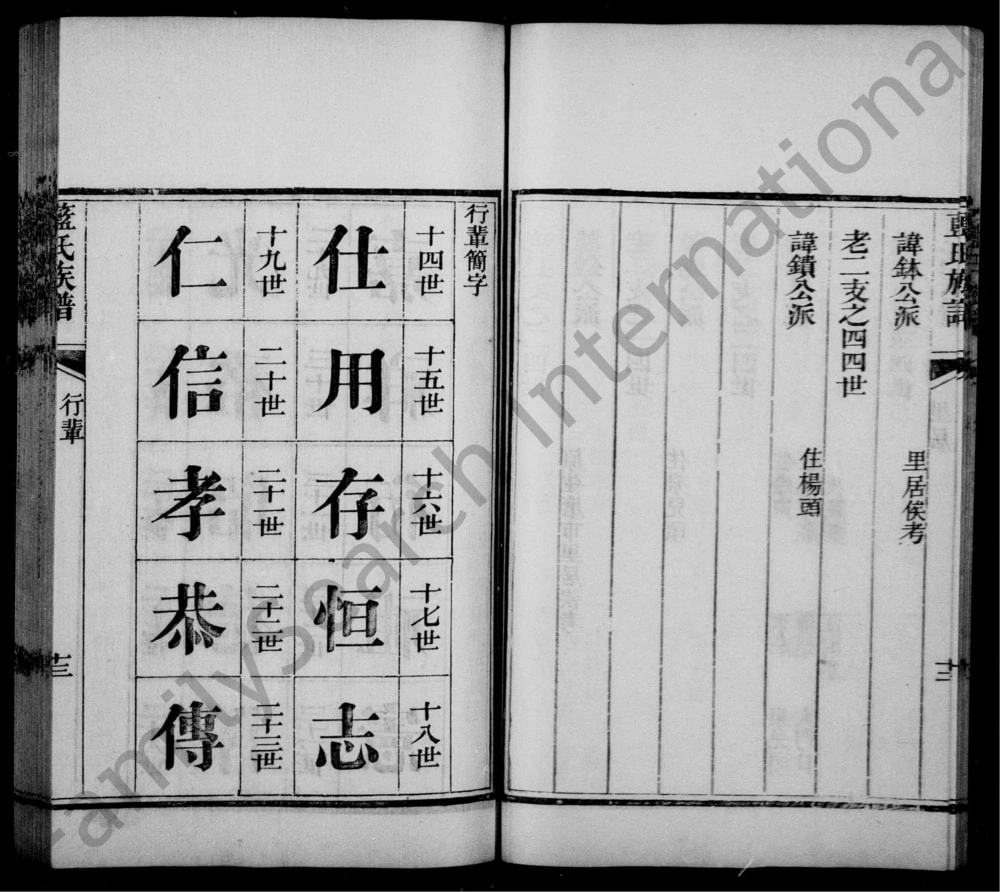 藍氏族譜
十二
諱鉢公派 里居俟考
老二支之四四世
諱鐀公派 住楊頭
行輩簡字
十四世 十五世 十六世 十七世 十八世
仕 用 存 恒 志
十九世 二十世 二十一世 二十二世 二十三世
仁 信 孝 恭 傳
藍氏族譜 行輩 十三
FamilySearch International